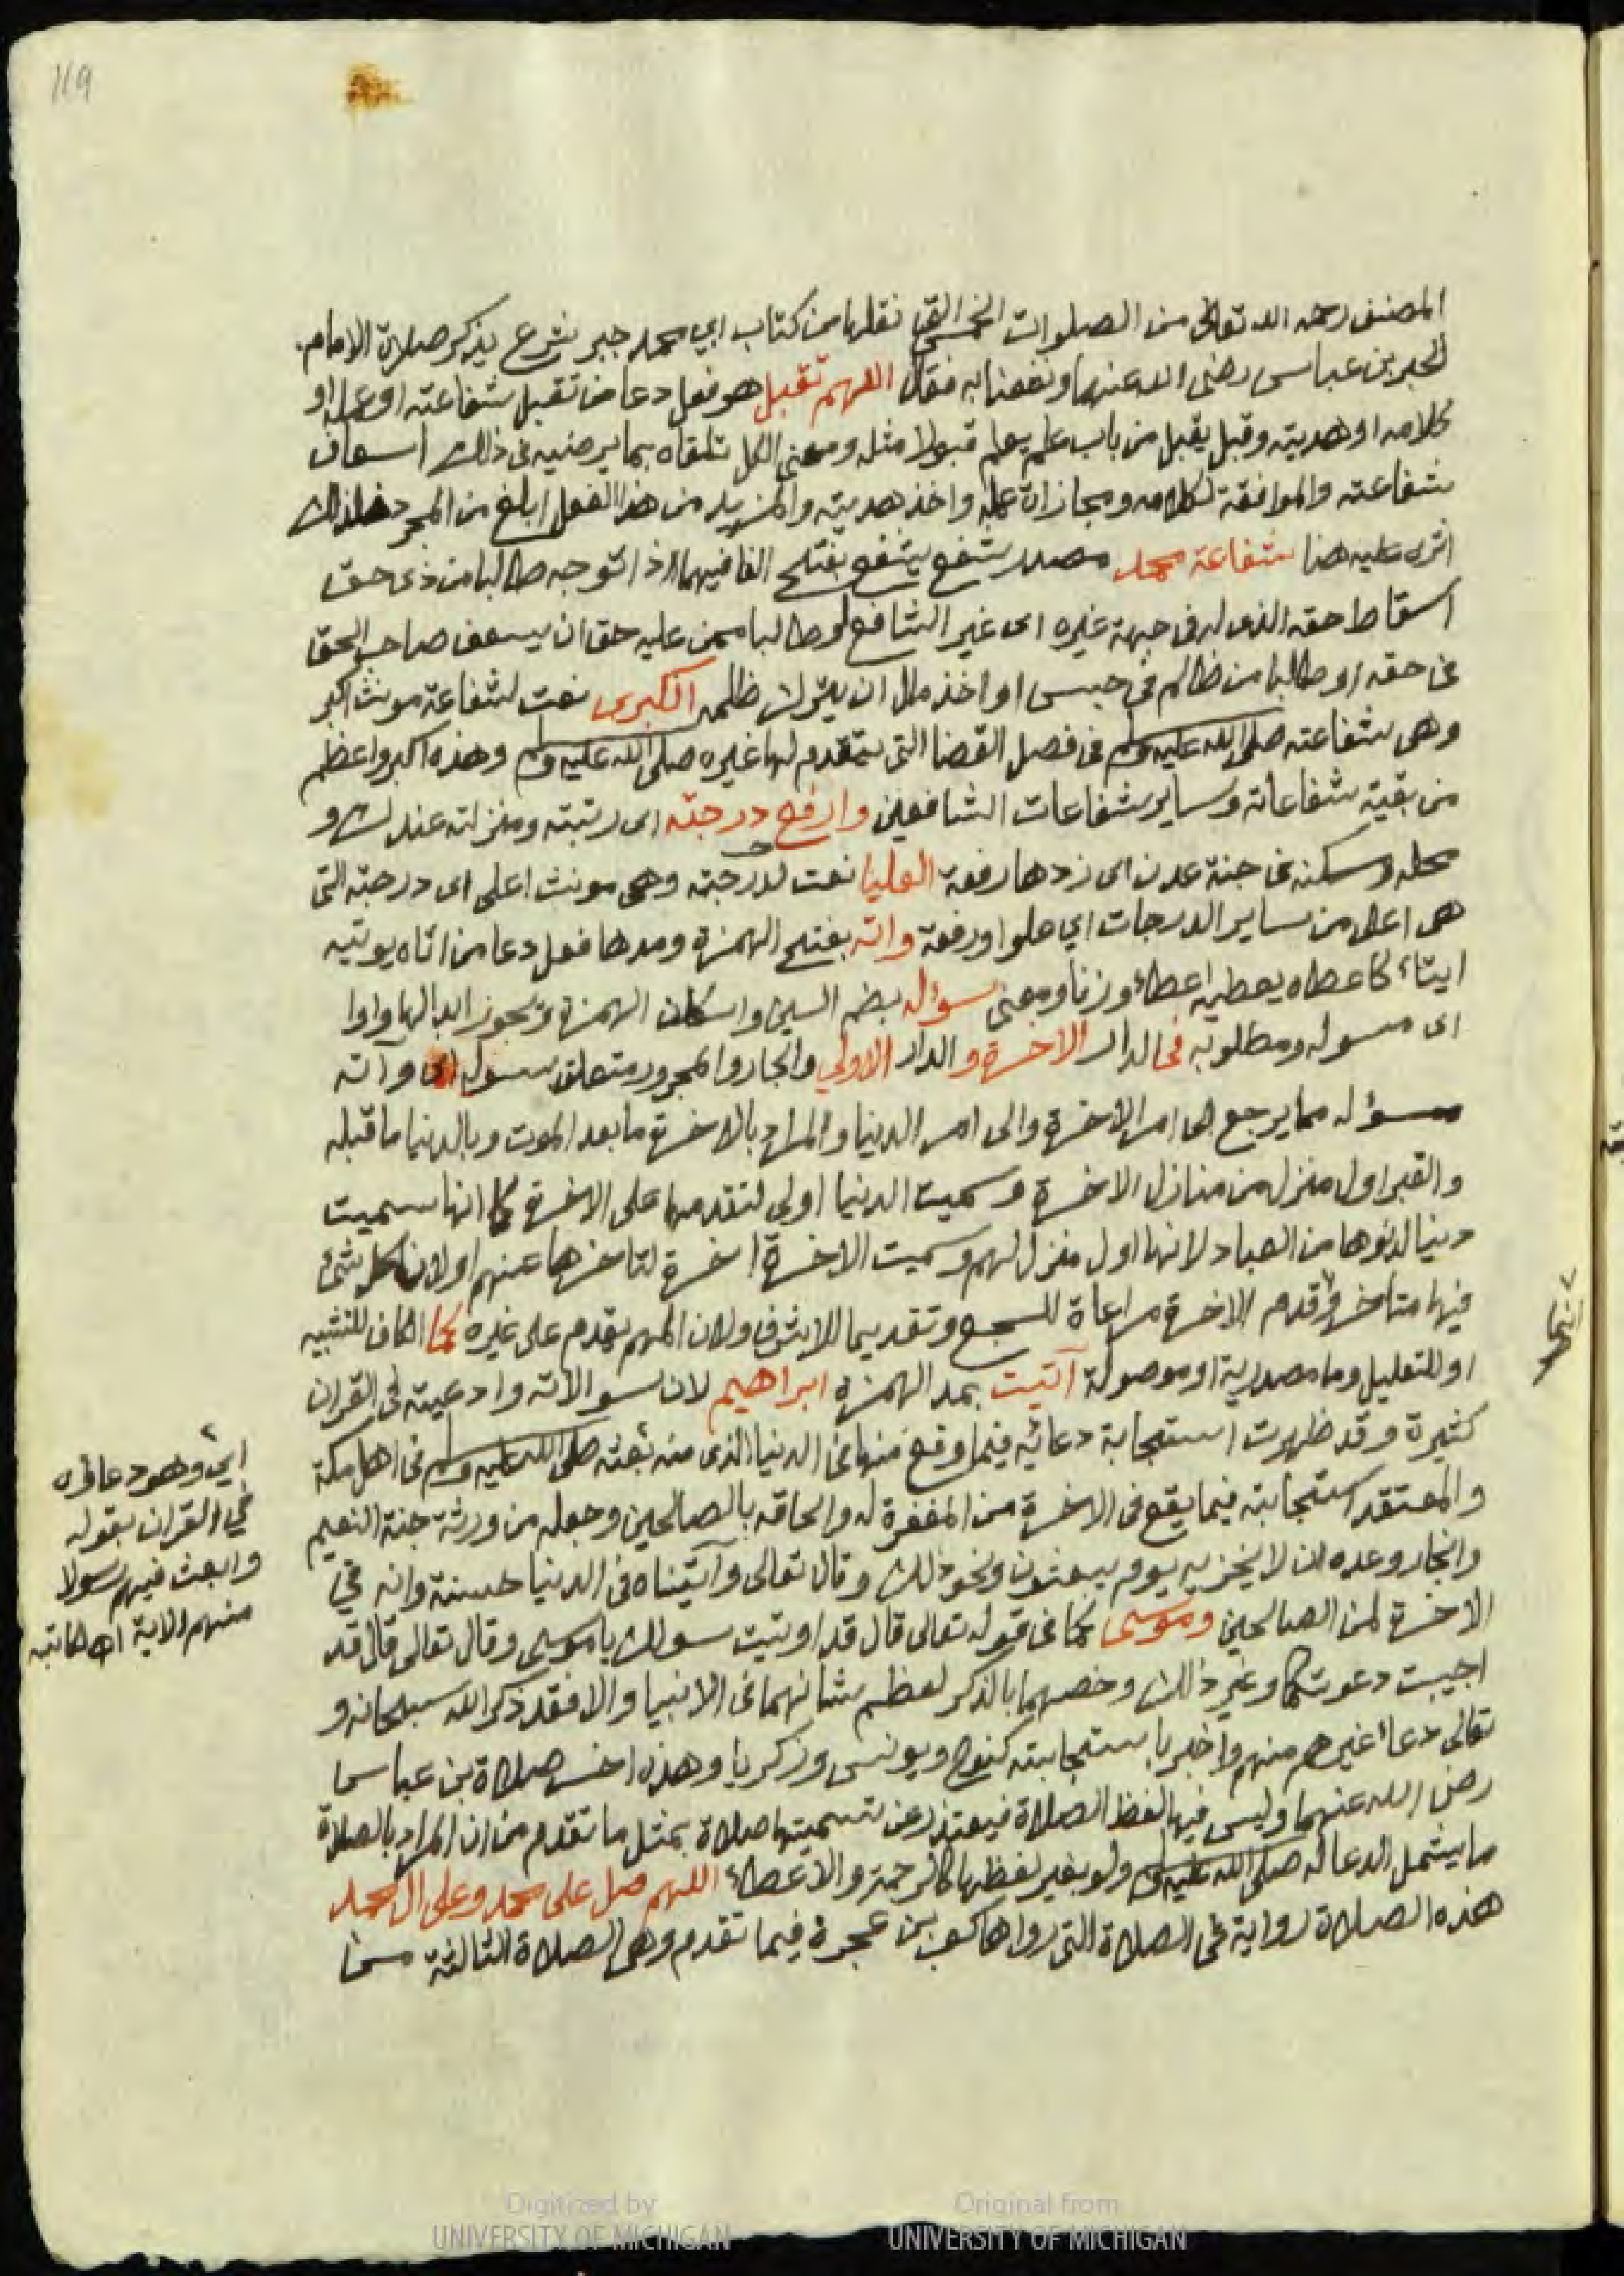 119
المصنف رحمه الله تعالى من الصلوات الخمس التي نقلها من كتاب ابي محمد جبر شرع يذكر صلاة الامام
الحبر بن عباس رضى الله عنهما ونفعنا به فقال اللهم تقبل هو فعل دعا من تقبل شفاعته او عمله او
كلامه او هديته وقبل يقبل من باب علم يعلم قبولا مثله ومعنى الكل تلقاه بما يرضيه فى ذلك اسعاف
شفاعته والموافقة لكلامه ومجازاة عمله واخذ هديته والمزيد من هذا الفعل ابلغ من المجرد فلذلك
اثره عليه هنا شفاعة محمد مصدر شفع يشفع بفتح الفا فيهما اذا توجه طالبا من ذى حق
اسقاط حقه الذى له فى جهة غيره اى غير الشافع او طالبا ممن عليه حق ان يسعف صاحب الحق
فى حقه او طالبا من ظالم فى حبس او اخذ مال ان يترك ظلمه الكبرى نعت لشفاعة مونث اكبر
وهى شفاعته صلى الله عليه وسلم فى فصل القضا التى يتقدم لها غيره صلى الله عليه وسلم وهذه اكبر واعظم
من بقية شفاعاته وساير شفاعات الشافعين وارفع درجته اى رتبته ومنزلته عندك و
محله ومسكنه فى جنة عدن اى زدها رفعة العليا نعت لدرجته وهى مونث اعلى اى درجته التى
هى اعلى من ساير الدرجات اي علوا ورفعة واته بفتح الهمزة ومدها فعل دعا من اتاه يوتيه
ايتاء كاعطاه يعطيه اعطاء وزنا ومعنى سؤله بضم السين واسكان الهمزة ويجوز ابدالها واوا
اى مسوله ومطلوبه فى الدار الاخرة و الدار الاولي والجار والمجرور متعلق بسوله اى وآته
مسؤله مما يرجع الى امر الاخرة والى امر الدنيا والمراد بالاخرة ما بعد الموت وبالدنيا ما قبله
والقبر اول منزل من منازل الاخرة وسميت الدنيا اولى لتقدمها على الاخرة كما انها سميت
دنيا لدنوها من العباد لانها اول منزل لهم وسميت الاخرة اخرة لتاخرها عنهم او لان كل شئ
فيها متاخر وقدم الاخرة مراعاة للسجع وتقديما للاشرف ولان المهم يقدم على غيره كما الكاف للتشبيه
او للتعليل وما مصدرية او موصولة آتيت بمد الهمزة ابراهيم لان سوالاته وادعيته فى القران
كثيرة وقد ظهرت استجابة دعائه فيما وقع منها فى الدنيا الذى منه بعثه صلى الله عليه وسلم فى اهل مكة
والمعتقد استجابته فيما يقع فى الاخرة من المغفرة له والحاقه بالصالحين وجعله من ورثة جنة النعيم
وانجاز وعده ان لا يخزيه يوم يبعثون ونحو ذلك وقال تعالى وآتيناه فى الدنيا حسنة وانه في
الاخرة لمن الصالحين وموسى كما فى قوله تعالى قال قد اوتيت سولك يا موسى وقال تعالى قال قد
اجيبت دعوتكما وغير ذلك وخصهما بالذكر لعظم شانهما فى الانبيا والا فقد ذكر الله سبحانه و
تعالى دعاء غيرهم منهم واخبر باستجابته كنوح ويونس وزكريا وهذه اخر صلاة بن عباس
رضى الله عنهما وليس فيها لفظ الصلاة فيعتذر عن تسميتها صلاة بمثل ما تقدم من ان المراد بالصلاة
ما يشمل الدعا له صلى الله عليه وسلم ولو بغير لفظها كالرحمة والاعطاء اللهم صل على محمد وعلى ال محمد
هذه الصلاة رواية فى الصلاة التى رواها كعب بن عجرة فيما تقدم وهى الصلاة الثالثة من
وهو دعاؤه
في القران بقوله
وابعث فيهم رسولا
منهم الاية اه كاتبه
Digitized by
UNIVERSITY OF MICHIGAN
Original from
UNIVERSITY OF MICHIGAN